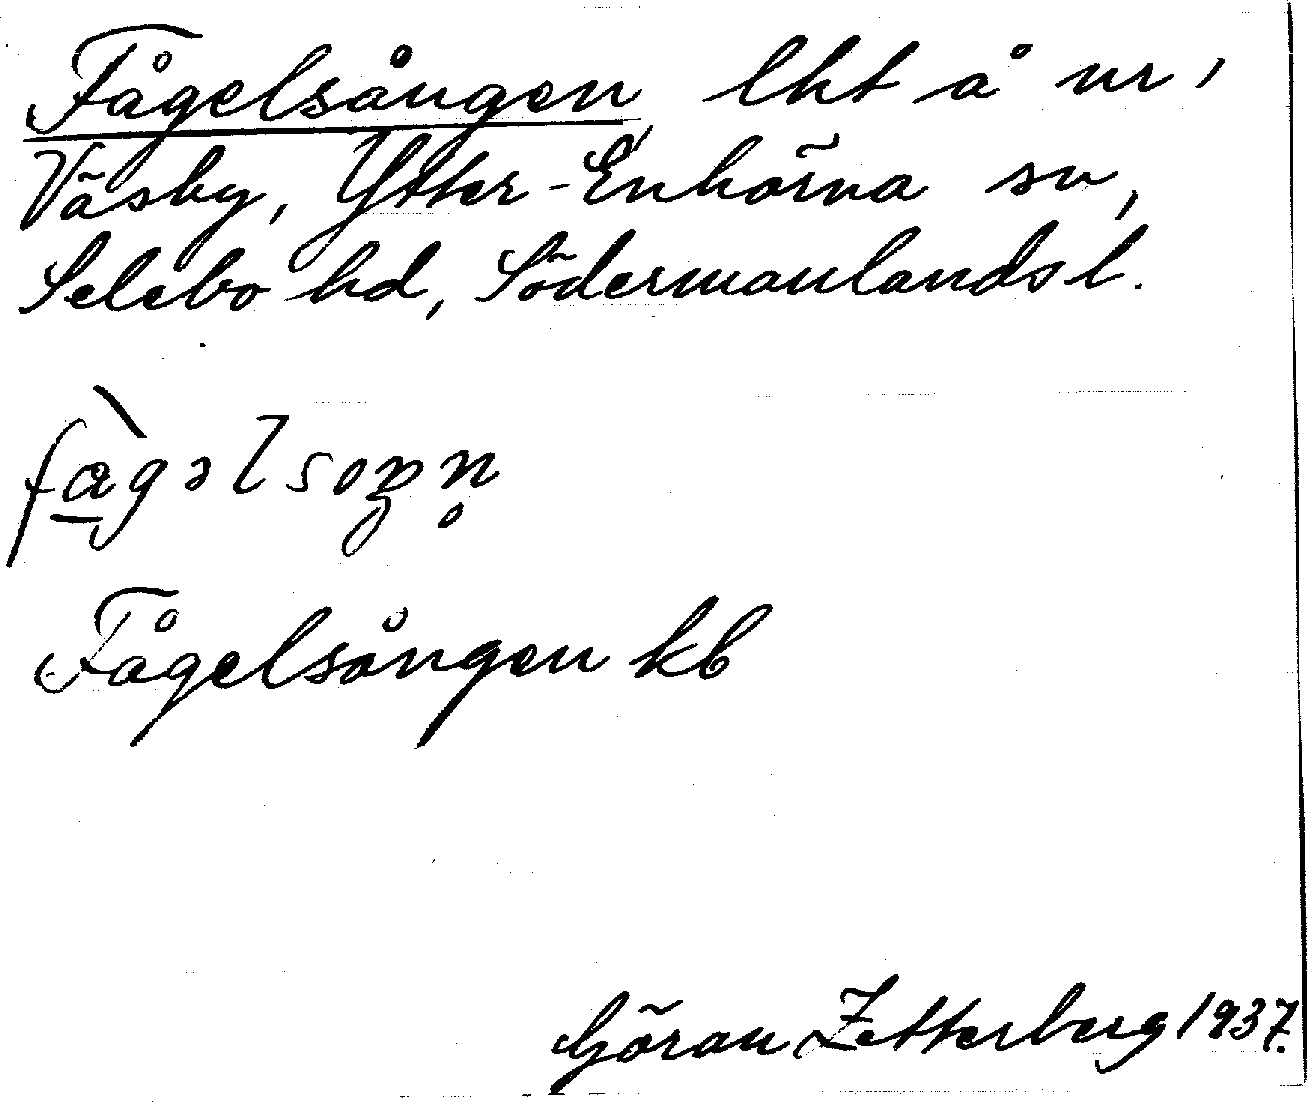 Fågelsången lht å nr 1
Väsby, Ytter-Enhörna sn,
Selebo hd, Södermanlands l.
fàgəlsoŋn̥
Fågelsången kb
Göran Zetterberg 1937.